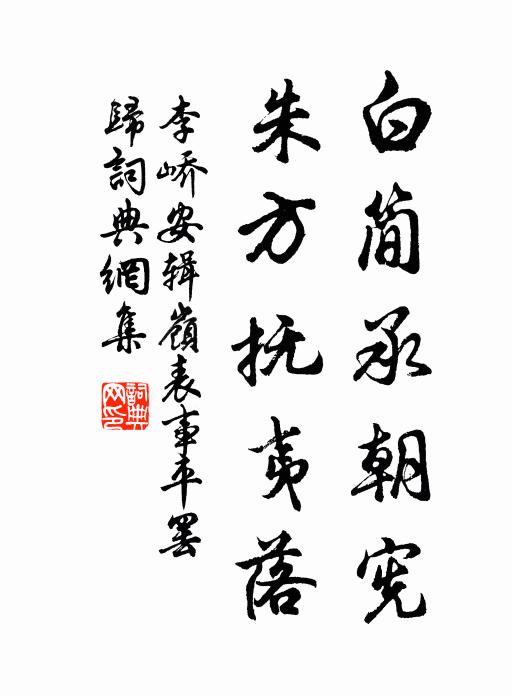 白简承朝宪
朱方抚夷落
李峤安辑嶺表事平罢
歸詞典網集
詞典
网印